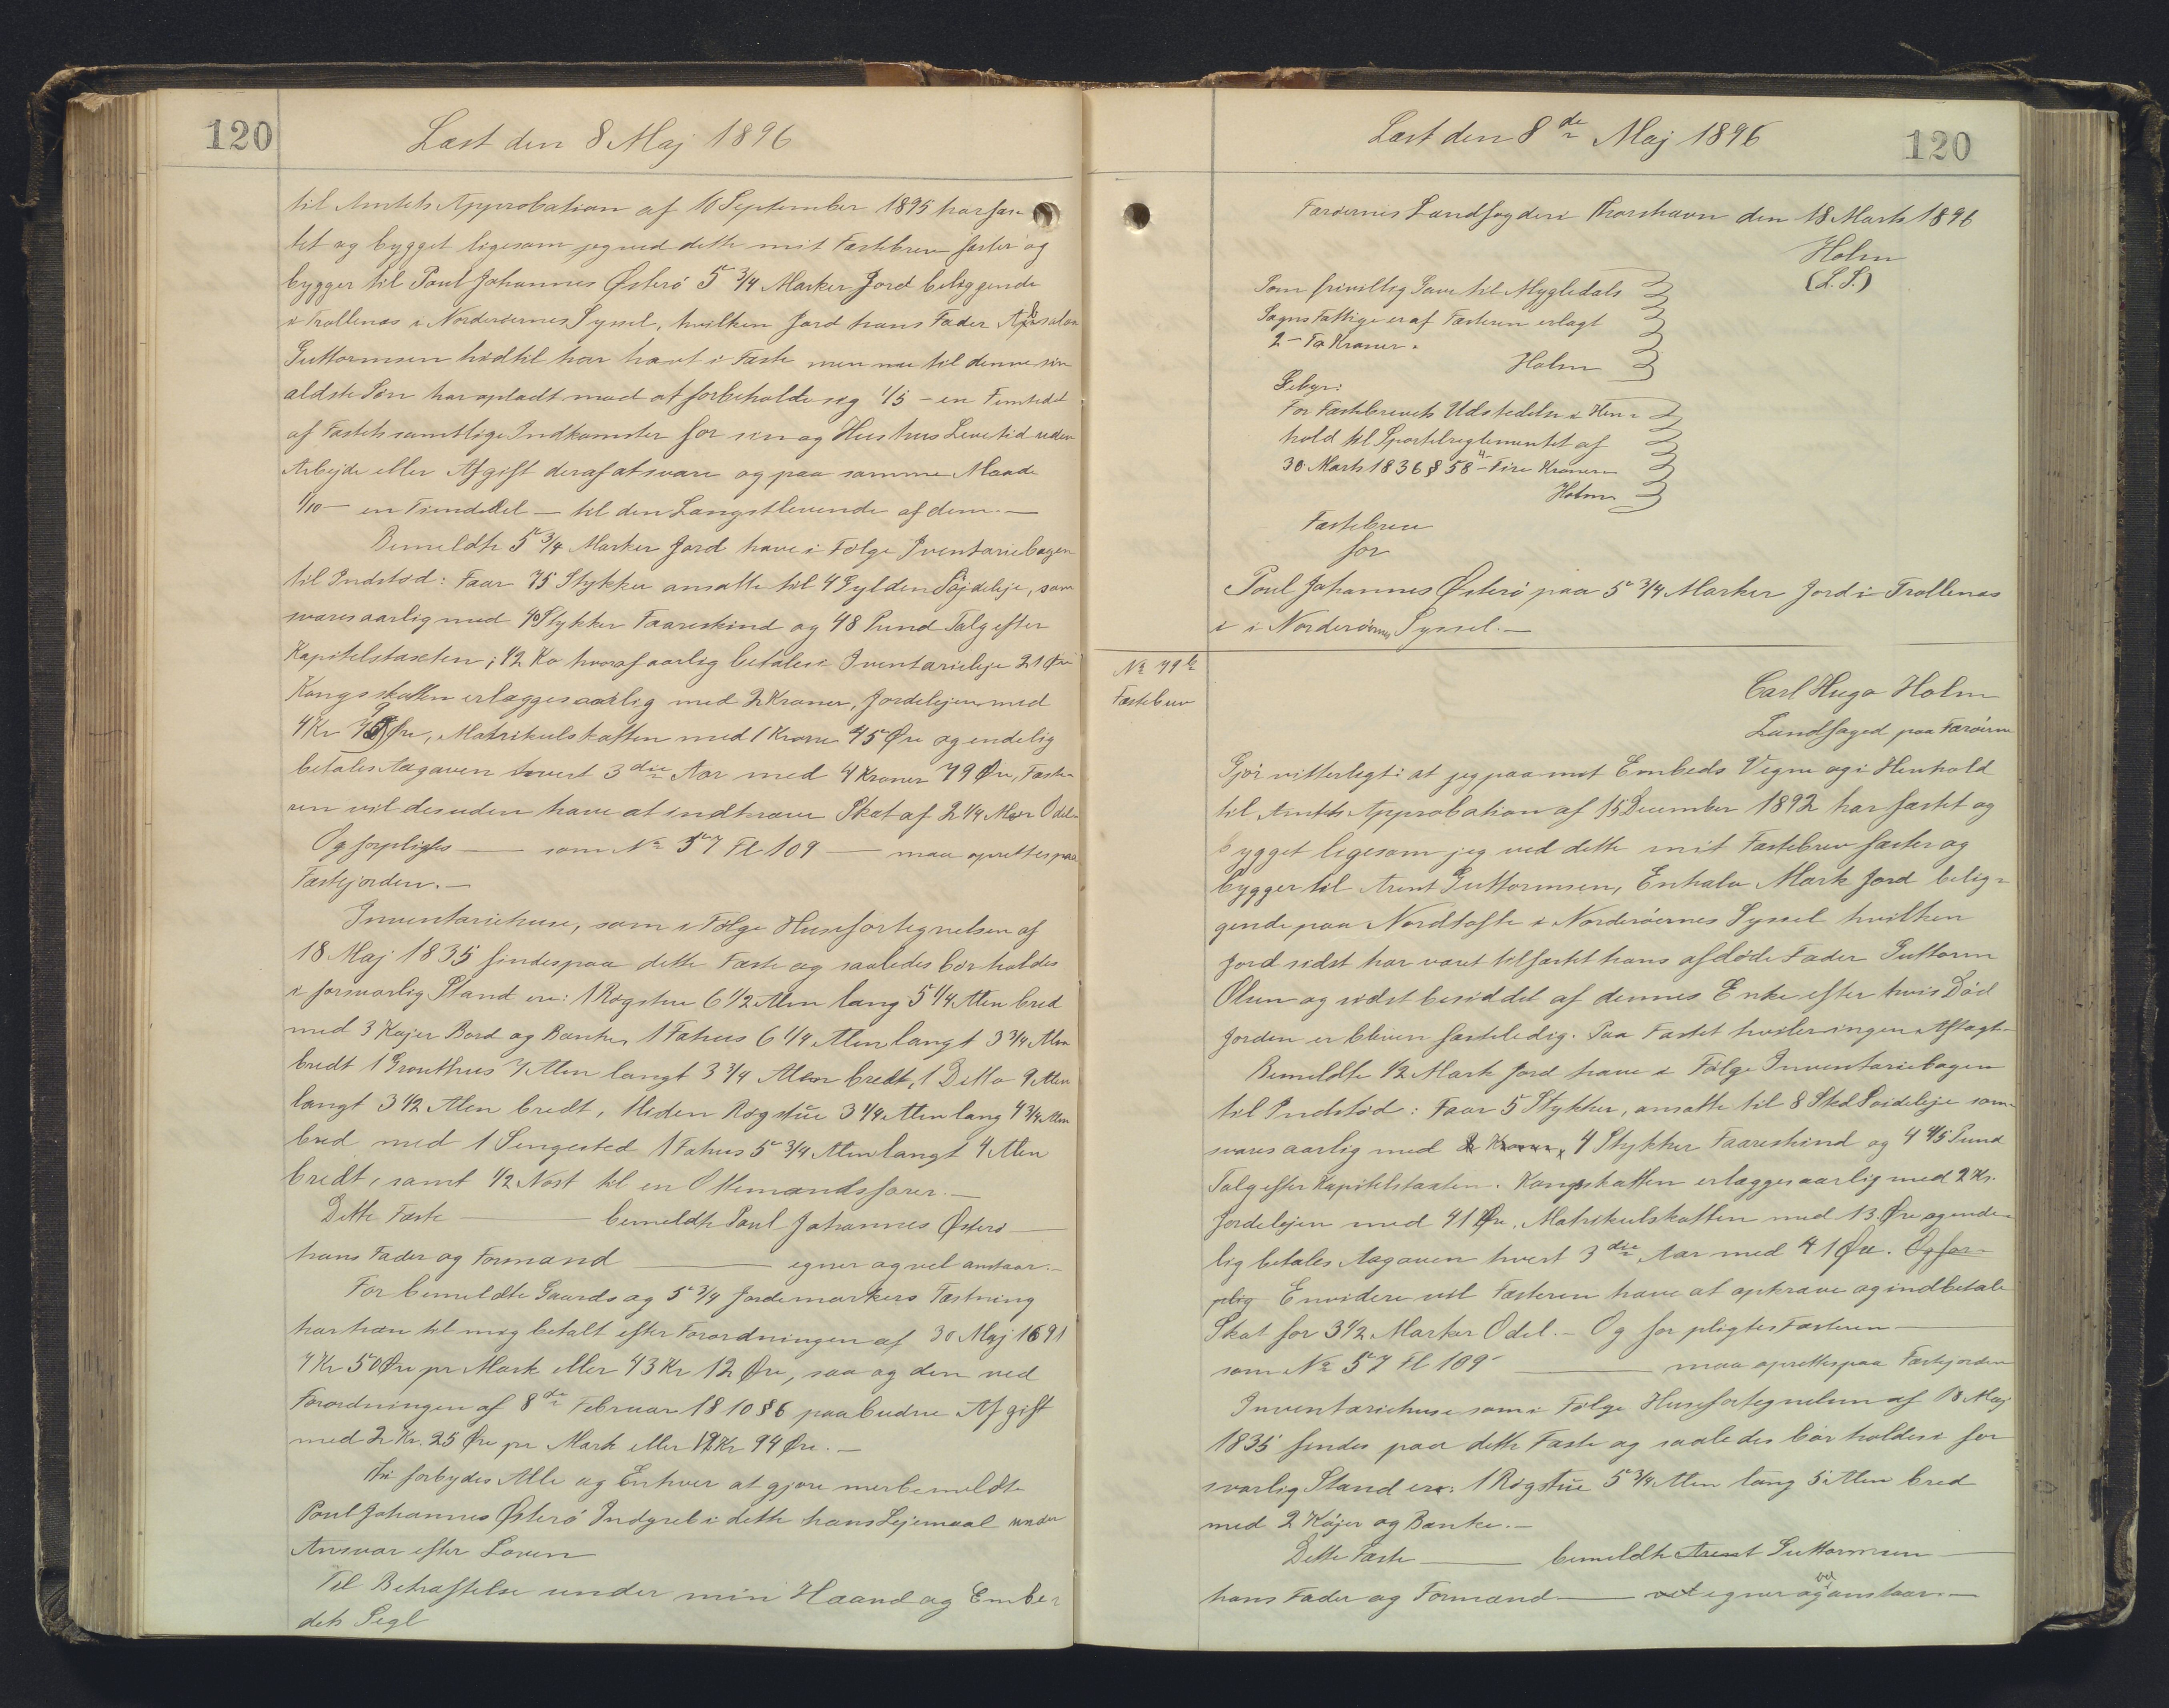 120
Læst den 8 Maj 1896
til Amtets Approbation af 16 September 1895 har fæs-
tet og bygget ligesom jeg ved dette mit Fæstebrev fæster og
bygger til Poul Johannes Østerö 5 3/4 Marker Jord beliggende
i Trollenæs i Norderöernes Syssel, hvilken Jord hans Fader Absalon
Guttormsen hidtil har havt i Fæste men nu til denne sin
ældste Sön har opladt mod at forbeholde sig 1/5 - en Femtedel
af Fæstets samtlige Indkomster for sin og Hustrus Levetid uden
Arbejde eller Afgift deraf at svare og paa samme Maade
1/10 - en Tiendedel - til den Længstlevende af dem. -
Bemeldte 5 3/4 Marker Jord have i Fölge Iventariebogen
til Indstöd: Faar 75 Stykker ansatte til 4 Gylden Söjdeleje, som
svares aarlig med 40 Stykker Faareskind og 48 Pund Talg efter
Kapitelstaxten; 1/2 Ko hvoraf aarlig betales i Iventarieleje 21 Øre
Kongsskatten erlægges aarlig med 2 Kroner, Jordelejen med
4 Kr 79 Øre, Matrikulskatten med 1 Krone 45 Øre og endelig
betales Aagaven hvert 3die Aar med 4 Kroner 79 Øre, Fæste-
ren vil desuden have at indkræve Skat af 2 1/4 Mær Odel-
Og forpligtes — som No 57 Fl 109 — maa oprettes paa
Fæstejorden. -
Inventariehuse, som i Fölge Husefortegnelsen af
18 Maj 1835 findes paa dette Fæste og saaledes bör holdes
i forsvarlig Stand ere: 1 Rögstue 6 1/2 Alen lang 5 1/4 Alen bred
med 3 Kojer Bord og Bænke, 1 Fæhus 6 1/4 Alen langt 3 3/4 Alen
bredt 1 Grouthus 7 Alen langt 3 3/4 Alen bredt, 1 Ditto 9 Alen
langt 3 1/2 Alen bredt, 1 liden Rögstue 3 1/4 Alen lang 4 3/4 Alen
bred med 1 Sengested 1 Fæhus 5 3/4 Alen langt 4 Alen
bredt, samt 1/2 Nöst til en Ottemandsfarer. -
Dette Fæste — bemeldte Poul Johannes Østerö —
hans Fader og Formand — egner og vel anstaar. -
For bemeldte Gaards og 5 3/4 Jordemarkers Fæstning
har han til mig betalt efter Forordningen af 30 Maj 1691
7 Kr 50 Øre pr Mark eller 43 Kr 12 Øre, saa og den ved
Forordningen af 8de Februar 1810 § 6 paabudne Afgift
med 2 Kr. 25 Øre pr Mark eller 12 Kr 94 Øre. -
Thi forbydes Alle og Enhver at gjöre merbemeldte
Poul Johannes Østerö Indgreb i dette hans Lejemaal under
Ansvar efter Loven
Til Bekræftelse under min Haand og Embe-
dets Segl
Læst den 8de Maj 1896
120
Færöernes Landfogderi Thorshavn den 18 Marts 1896
Holm
(L. S.)
Som frivillig Gave til Mygledals
Sogns Fattige er af Fæsteren erlagt
2 - To Kroner.
Holm
Gebyr:
For Fæstebrevets Udstedelse i Hen-
hold til Sportelreglementet af
30 Marts 1836 § 58 4 - Fire Kroner
Holm
Fæstebrev
for
Poul Johannes Østerö paa 5 3/4 Marker Jord i Trollenæs
i i Norderöernes Syssel. -
No 79
Fæstebrev
Carl Hugo Holm
Landfoged paa Færöerne
Gjör vitterligt: at jeg paa mit Embeds Vegne og i Henhold
til Amtets Approbation af 15 December 1892 har fæstet og
bygget ligesom jeg ved dette mit Fæstebrev fæster og
bygger til Arent Guttormsen, En halv Mark Jord belig-
gende paa Nordtofte i Norderöernes Syssel hvilken
Jord sidst har været tilfæstet hans afdöde Fader Guttorm
Olsen og sidst besiddet af dennes Enke efter hvis Död
Jorden er bleven fæsteledig. Paa Fæstet hviler ingen Aftægt-
Bemeldte 1/2 Mark Jord have i Fölge Inventariebogen
til Indstöd: Faar 5 Stykker, ansatte til 8 Sk Söideleje som
svares aarlig med 2 Kroner, 4 Stykker Faareskind og 4 4/5 Pund
Talg efter Kapitelstaxten. Kongsskatten erlægges aarlig med 2 Kr.
Jordelejen med 41 Øre, Matrikulskatten med 13 Øre og ende-
lig betales Aagaven hvert 3die Aar med 41 Øre. Og for-
plig Envidere vil Fæsteren have at opkræve og indbetale
Skat for 3 1/2 Marker Odel. - Og for pligtes Fæsteren —
som No 57 Fl 109 — maa oprettes paa Fæstejorden
Inventariehuse som i Fölge Husefortegnelsen af 18 Maj
1835 findes paa dette Fæste og saaledes bör holdes i for
svarlig Stand ere: 1 Rögstue 5 3/4 Alen lang 5 Alen bred
med 2 Köjer og Bænke. -
Dette Fæste — bemeldte Arent Guttormsen —
hans Fader og Formand — vel egner og vel anstaar. -